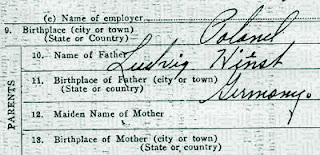 (c) Name of employer
9. Birthplace (city or town) Poland
(State or Country)
10. Name of Father Ludwig Winst
11. Birthplace of Father (city or town) Germany.
(State or Country)
PARENTS
12. Maiden Name of Mother
13. Birthplace of Mother (city or town)
(State or Country)